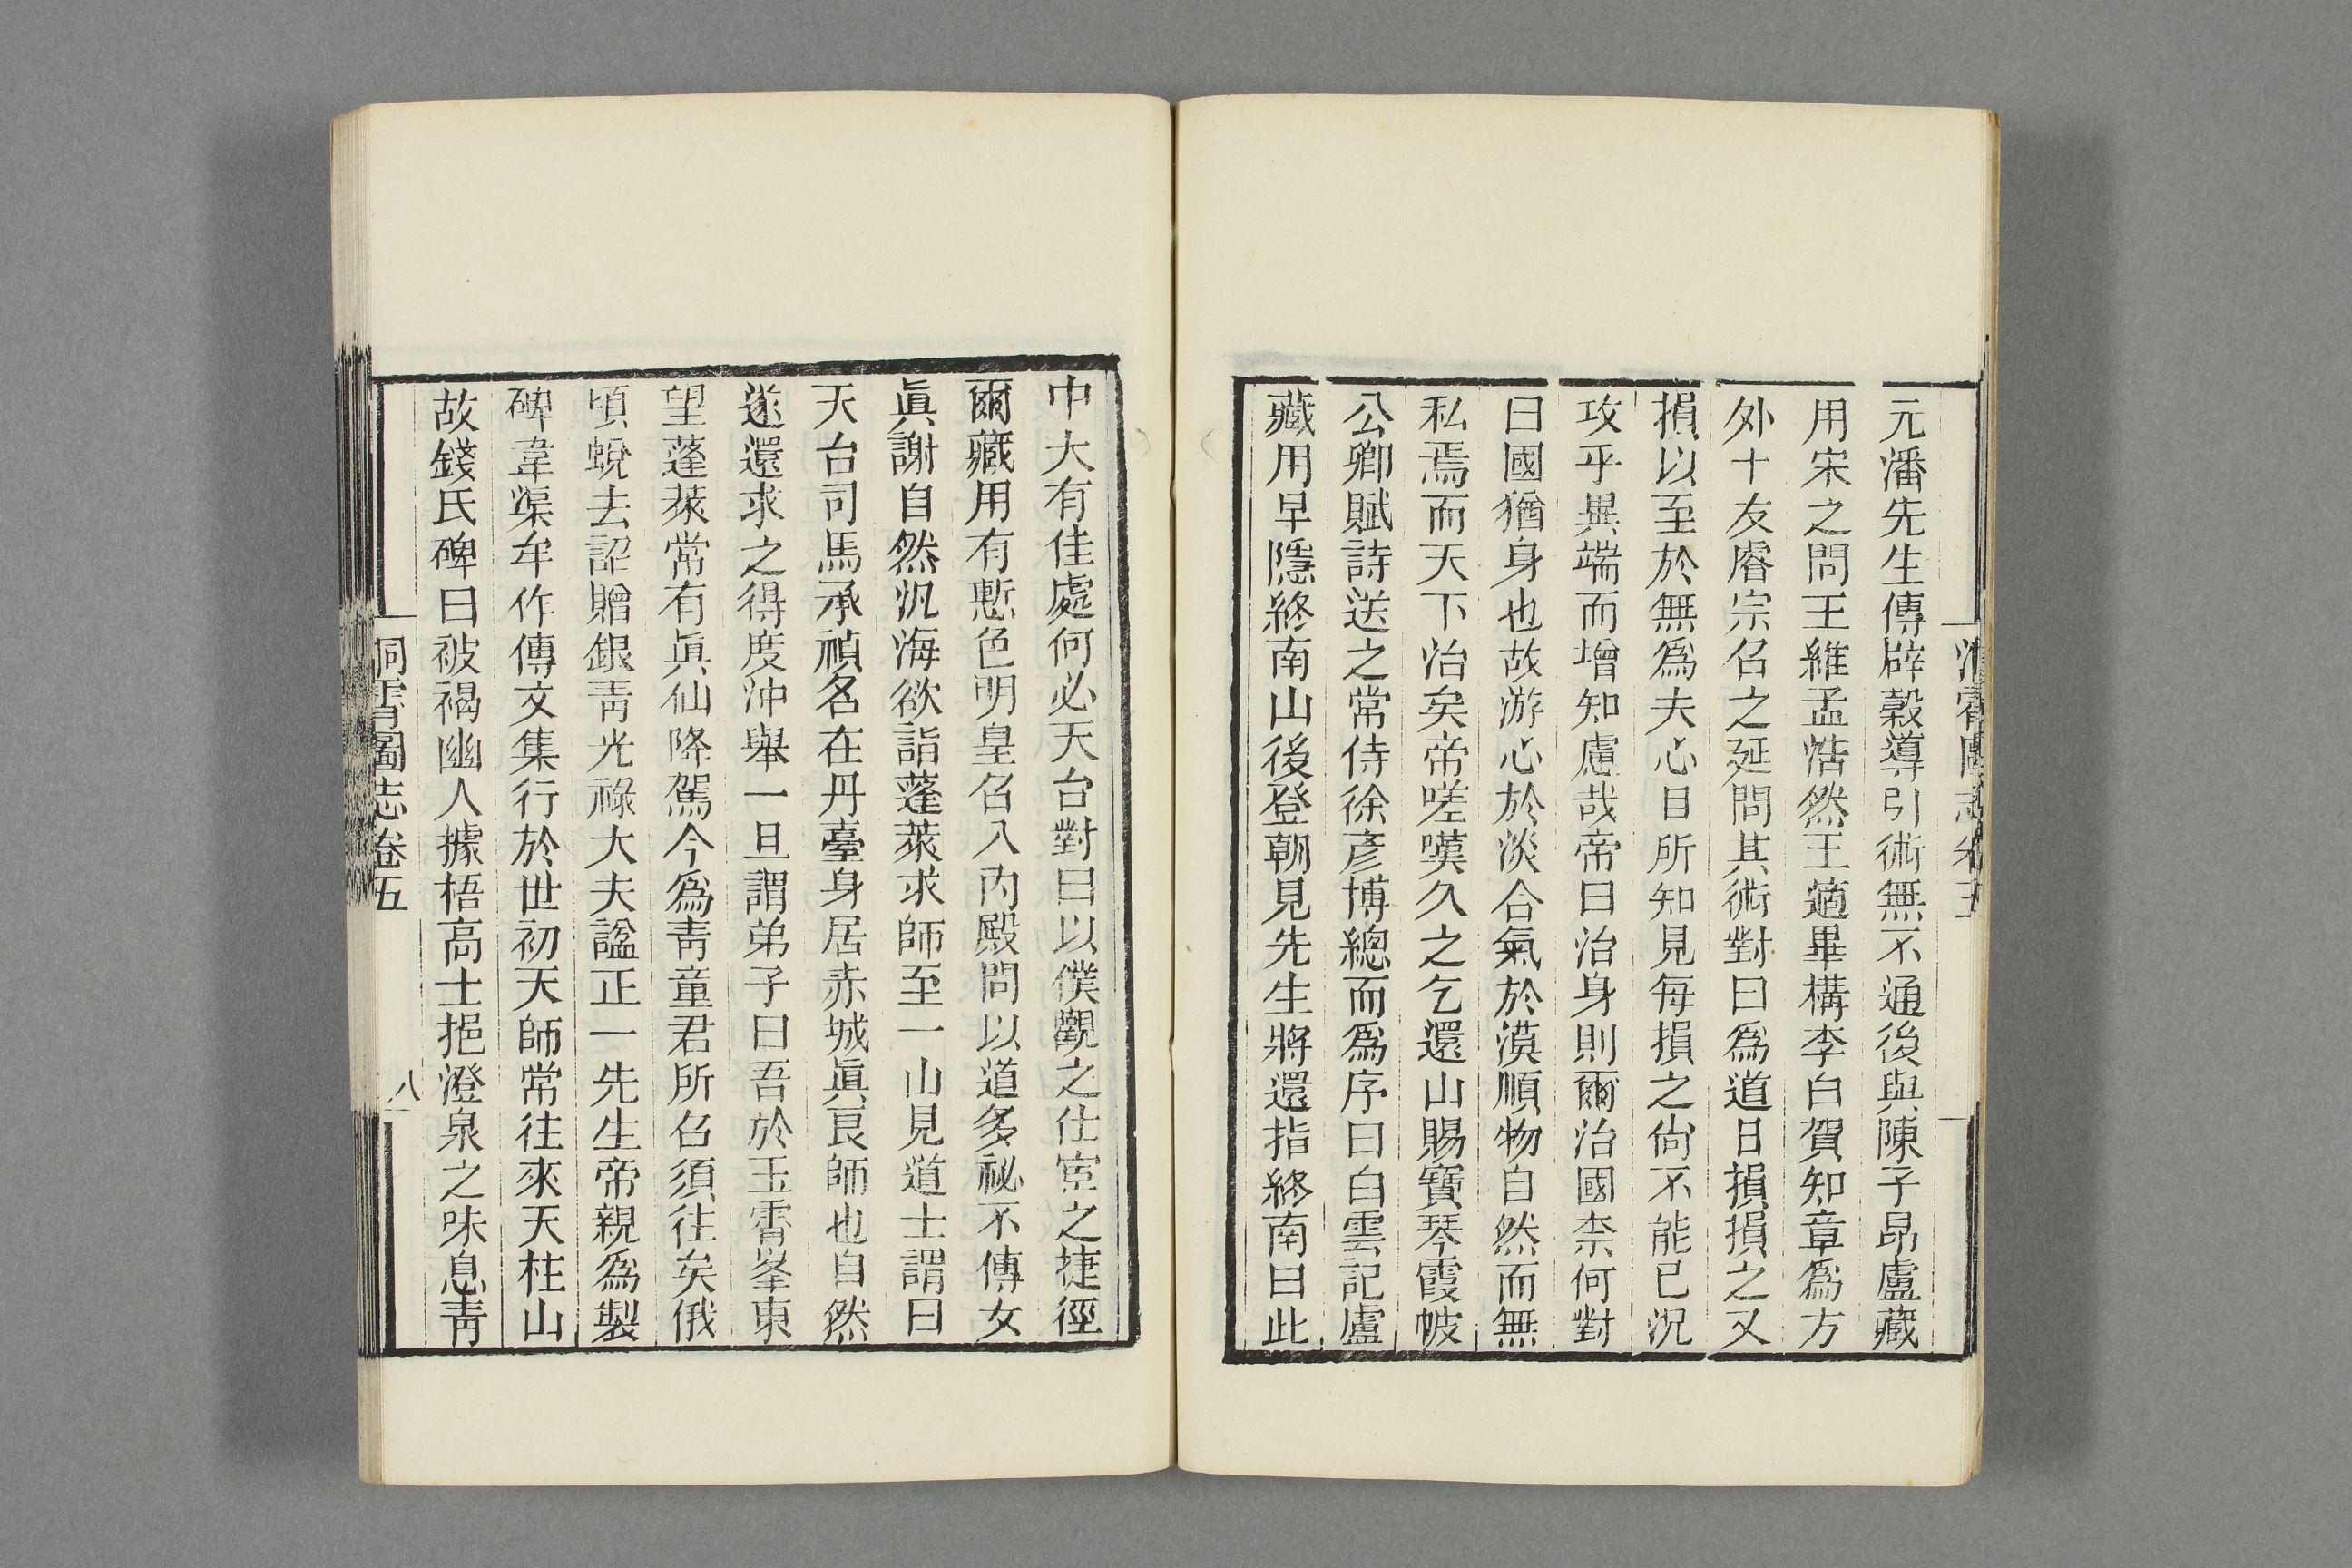 元潘先生傳辟穀導引術無不通後與陳子昂盧藏
用宋之問王維孟浩然王適畢構李白賀知章爲方
外十友睿宗召之延問其術對曰爲道日損損之又
損以至於無爲夫心目所知見每損之尙不能已況
攻乎異端而增知慮哉帝曰治身則爾治國柰何對
曰國猶身也故游心於淡合氣於漠順物自然而無
私焉而天下治矣帝嗟嘆久之乞還山賜寶琴霞帔
公卿賦詩送之常侍徐彥博總而爲序曰白雲記盧
藏用早隱終南山後登朝見先生將還指終南曰此
中大有佳處何必天台對曰以僕觀之仕宦之捷徑
爾藏用有慙色明皇召入內殿問以道多祕不傳女
眞謝自然汎海欲詣蓬萊求師至一山見道士謂曰
天台司馬承禎名在丹臺身居赤城眞良師也自然
遂還求之得度沖舉一旦謂弟子曰吾於玉霄峯東
望蓬萊常有眞仙降駕今爲靑童君所召須往矣俄
頃蛻去詔贈銀靑光祿大夫諡正一先生帝親爲製
碑韋渠牟作傳文集行於世初天師常往來天柱山
故錢氏碑曰被褐幽人據梧高士挹澄泉之味息靑
洞霄圖志卷五
八